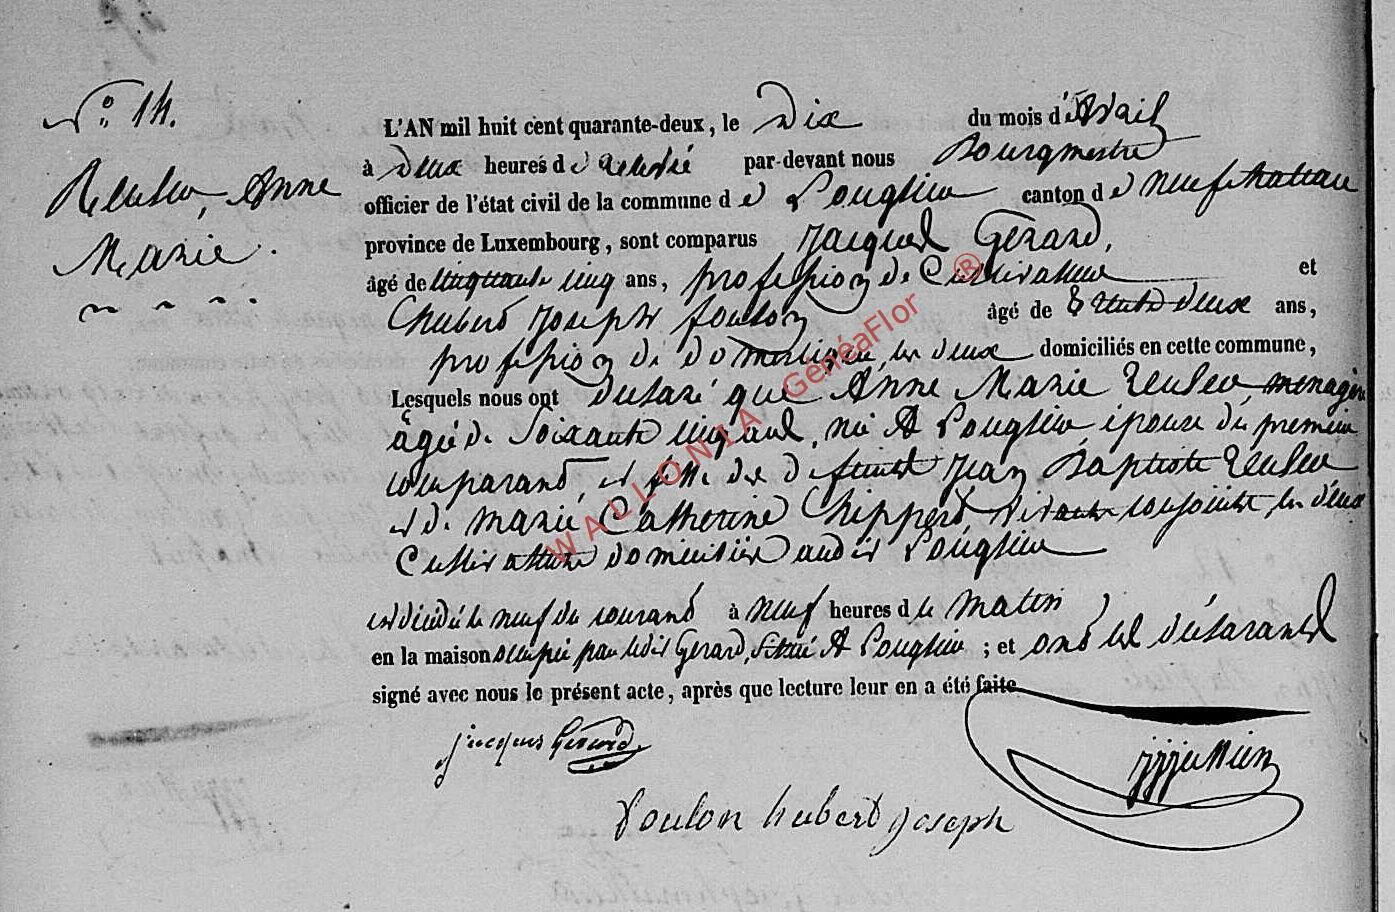 N.º 14.
Reuleu, Anne
Marie.
L'AN mil huit cent quarante-deux, le Dix du mois d'Avril
à Deux heures de relevée par-devant nous Bourgmestre
officier de l'état civil de la commune de Longlier canton de Neufchateau
province de Luxembourg, sont comparus Jacques Gerard,
âgé de cinquante cinq ans, profession de Cultivateur et
Hubert Joseph foulon âgé de trente deux ans,
profession de domestique, les deux domiciliés en cette commune,
Lesquels nous ont déclaré que Anne Marie Reuleu, menagère
âgée de Soixante cinq ans, née A Longlier, épouse du premier
comparant, et fille de defunts Jean Baptiste Reuleu
et de Marie Catherine Chippert, vivants conjoints les deux
Cultivateurs domiciliés audit Longlier
est décédée le neuf du courant à neuf heures du matin
en la maison occupée par ledit Gerard, située A Longlier ; et ont les déclarants
signé avec nous le présent acte, après que lecture leur en a été faite
jacques Gérard
foulon hubert joseph
WALLONIA GénéaFlor ®